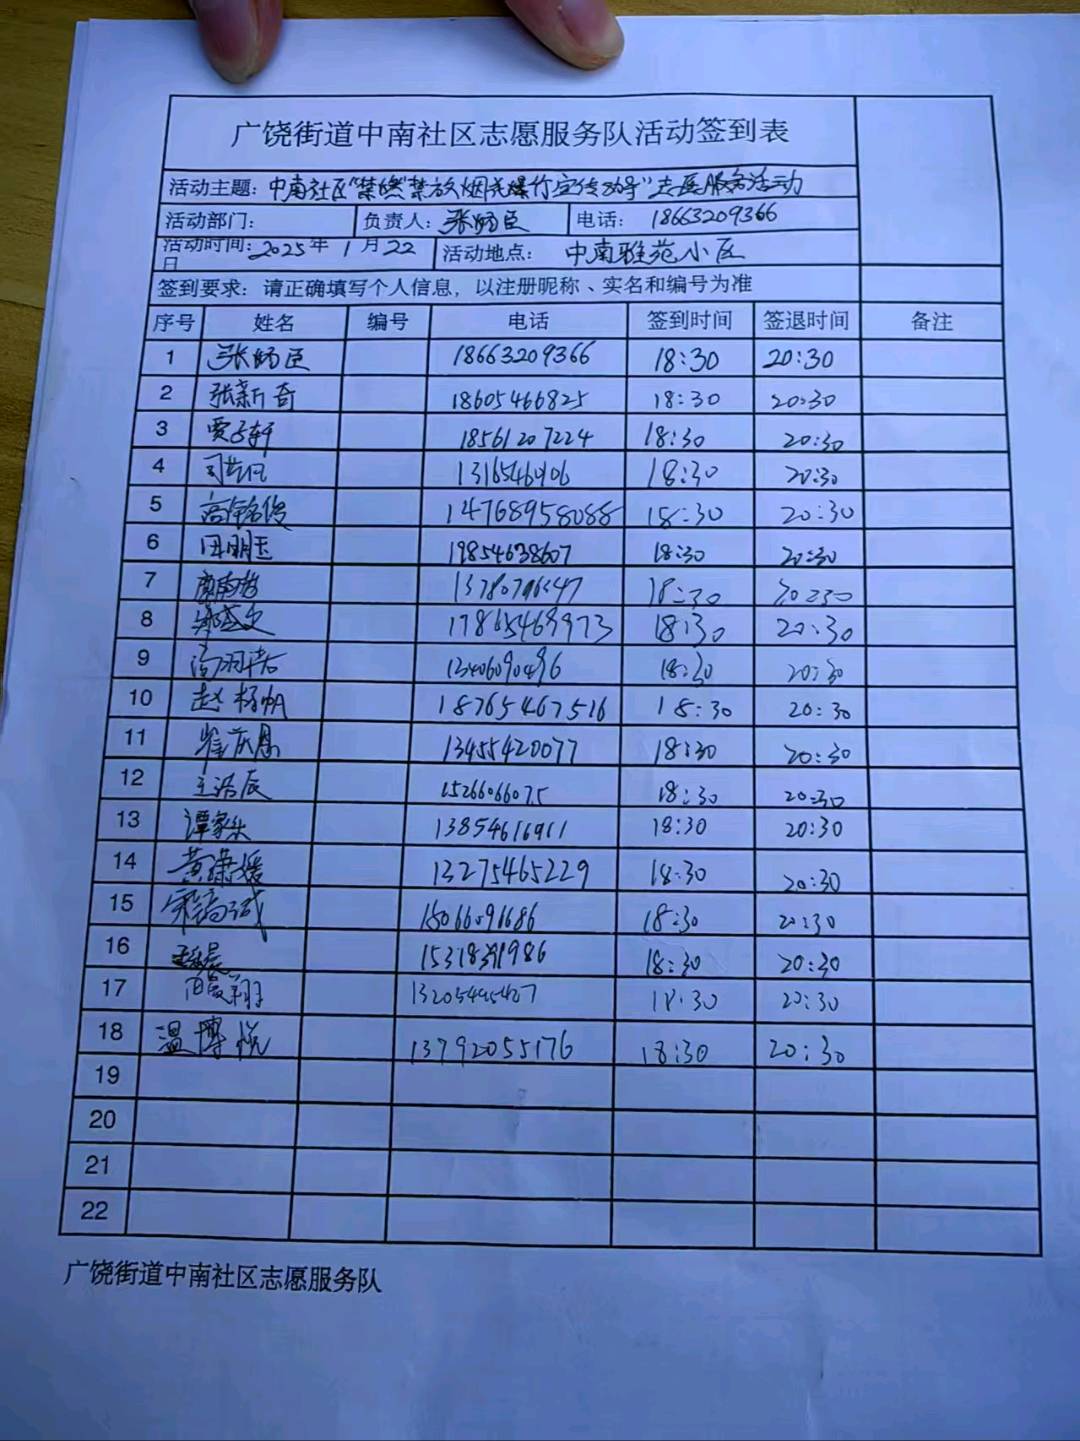 广饶街道中南社区志愿服务队活动签到表
活动主题：中南社区"禁燃""禁放烟花爆竹宣传劝导"志愿服务活动
活动部门： 负责人：张师臣 电话：18663209366
活动时间：2025年1月22日 活动地点：中南雅苑小区
签到要求：请正确填写个人信息，以注册昵称、实名和编号为准
序号 姓名 编号 电话 签到时间 签退时间 备注
1 18663209366 18:30 20:30
2 张新奇 18605466825 18:30 20:30
3 贾子轩 18561207224 18:30 20:30
4 18:30 20:30
5 14768958088 18:30 20:30
6 田明玉 19854638607 18:30 20:30
7 18:30 20:30
8 17865469973 18:30 20:30
9 13406090496 18:30 20:30
10 赵杨帆 18765467516 18:30 20:30
11 崔庆恩 13455420077 18:30 20:30
12 王浩辰 18:30 20:30
13 谭家乐 13854616911 18:30 20:30
14 黄潇媛 13275465229 18:30 20:30
15 15066091686 18:30 20:30
16 15318391986 18:30 20:30
17 18:30 20:30
18 温博悦 13792055176 18:30 20:30
19
20
21
22
广饶街道中南社区志愿服务队